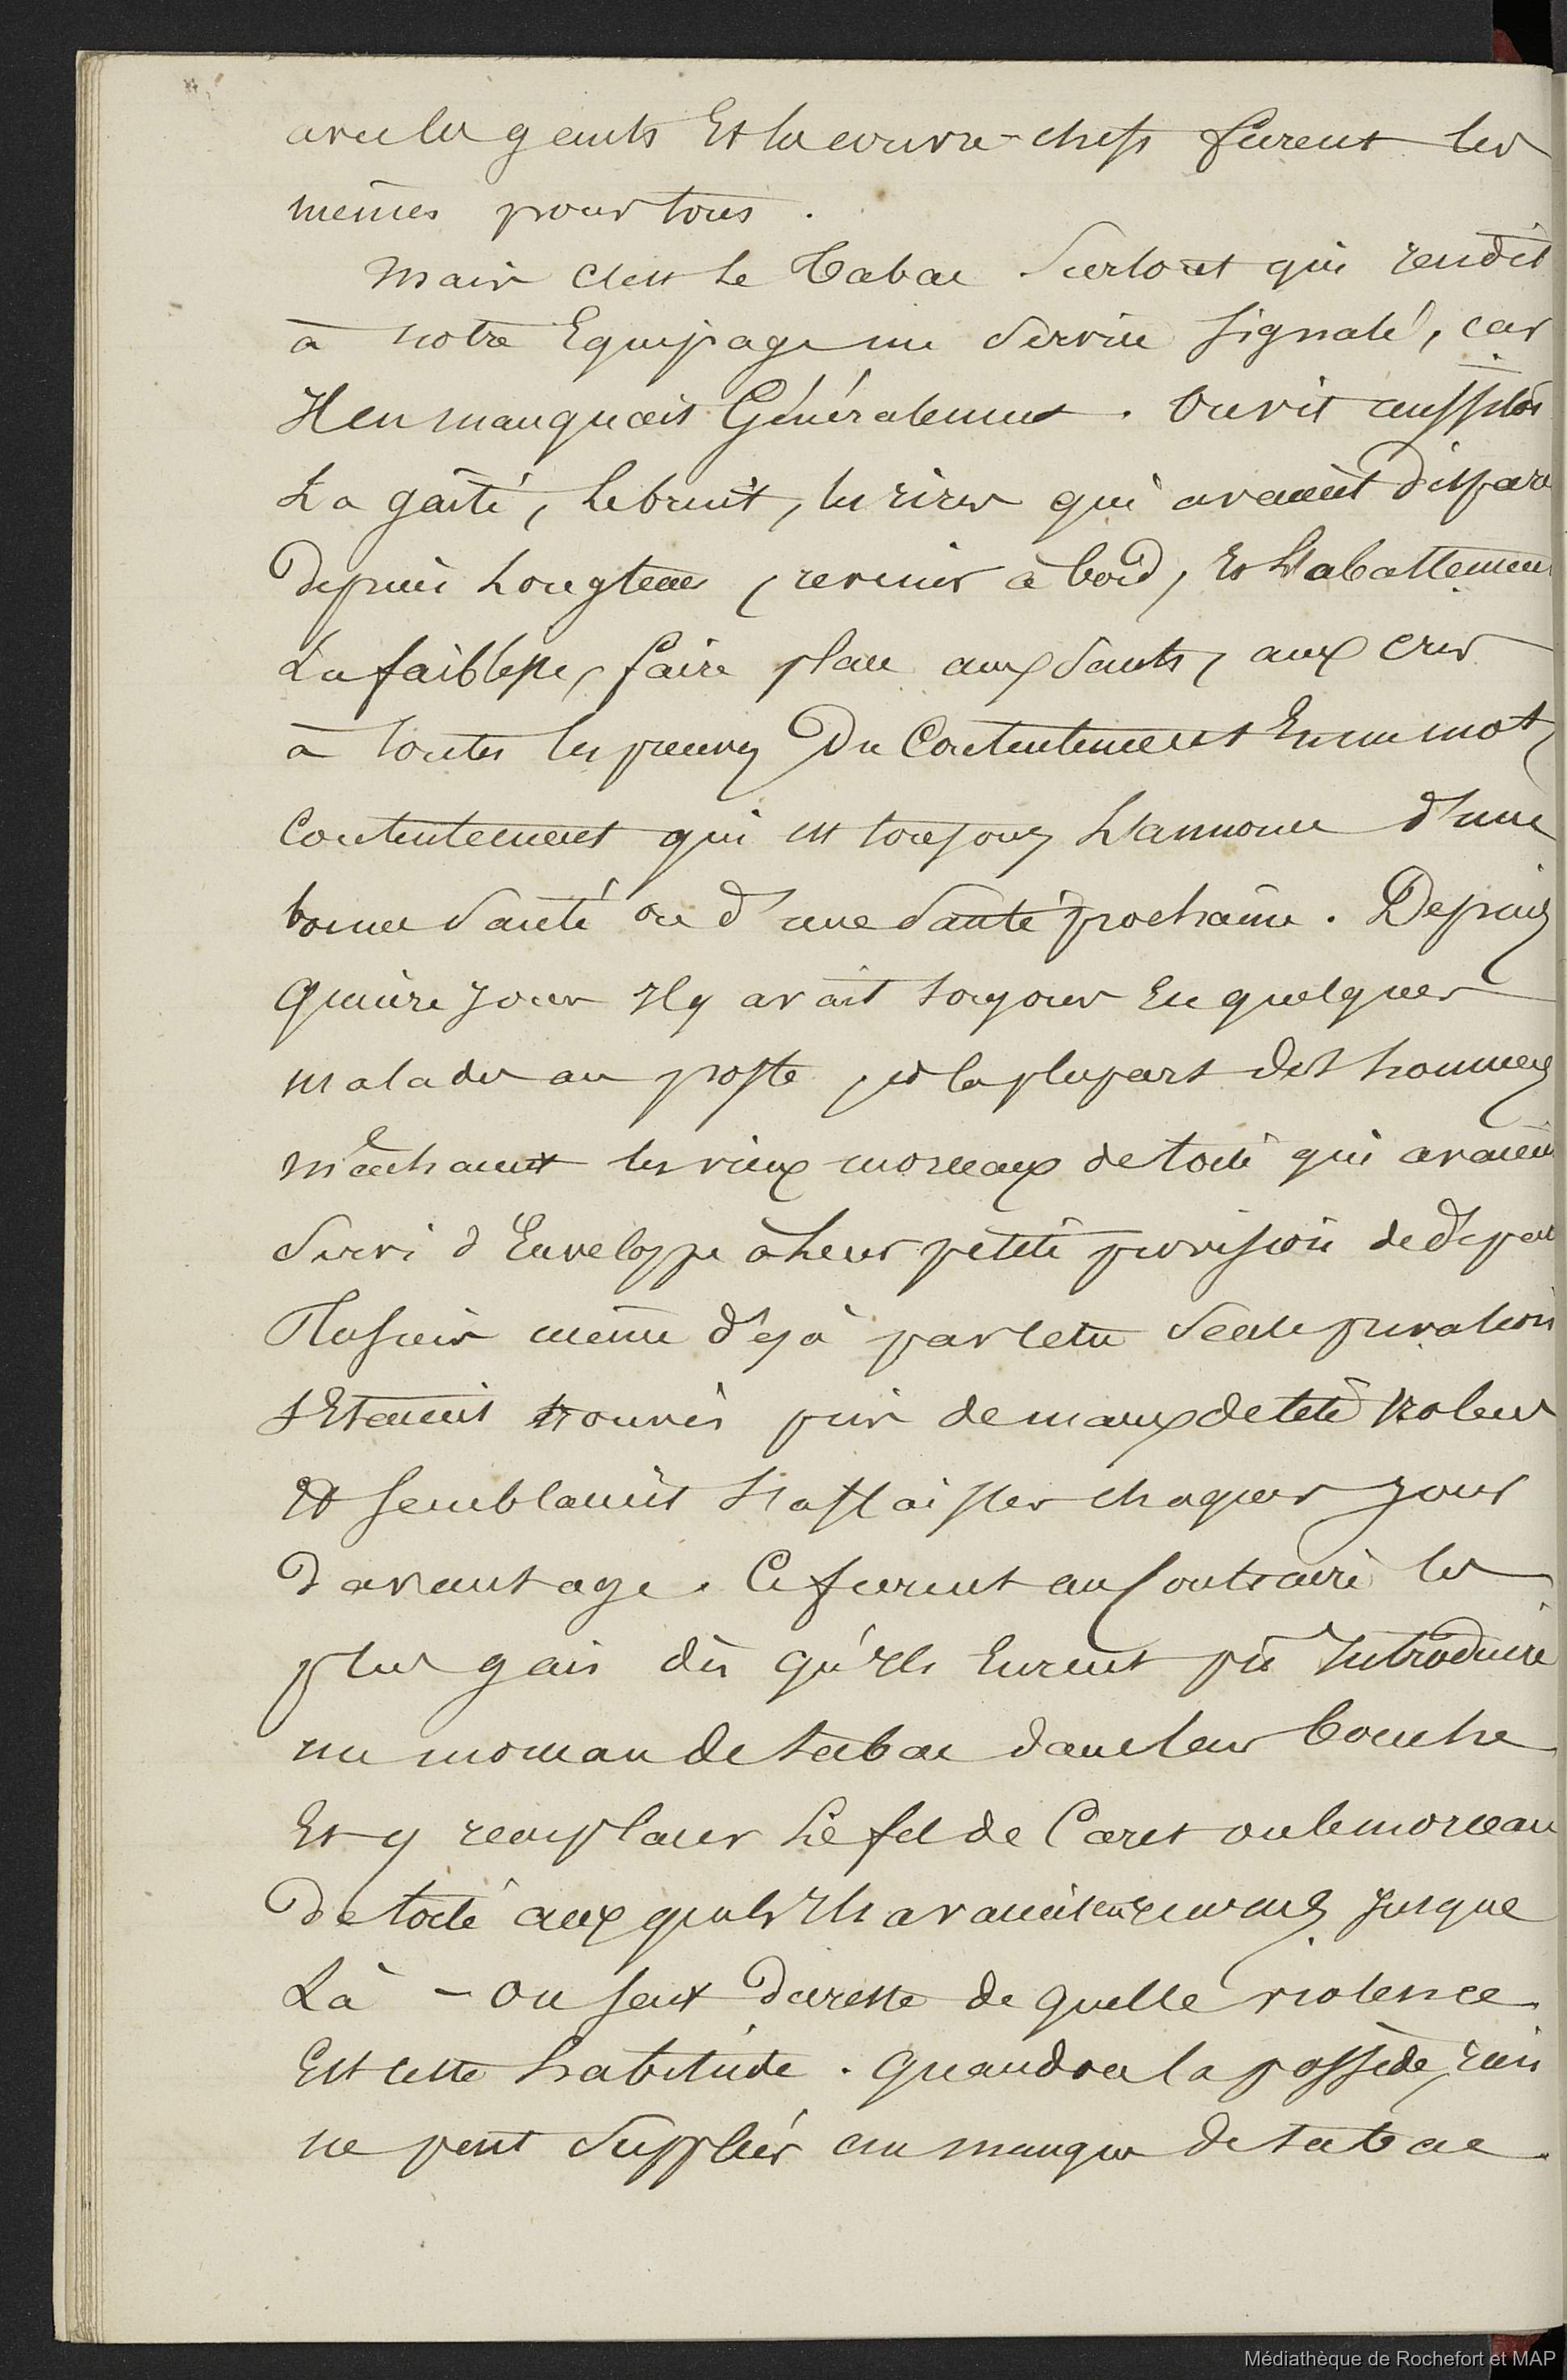 avec les gants Et les couvre-chefs furent les
mêmes pour tous.
Mais c'est le Tabac Surtout qui rendit
à notre Equipage un Service signalé, car
Il en manquait Généralement. On vit aussitôt
La gaîté, le bruit, les rires qui avaient disparu
Depuis Longtems, revenir à bord, Et L'abattement
La faiblesse, faire place aux Sauts, aux cris
à toutes les preuves Du Contentement En un mot,
Contentement qui est toujours L'annonce d'une
bonne Santé ou d'une Santé prochaine. Depuis
Quinze Jours Il y avait toujours Eu quelques
malades au poste, et la plupart des hommes
mâchaient les vieux morceaux de toile qui avaient
Servi d'Enveloppe à Leur petite provision de départ
Plusieurs même déjà par cette Seule privation
S'Etaient trouvés pris de maux de tête violens
Et semblaient S'affaisser chaque jour
Davantage. Ce furent au Contraire les
plus gais dès qu'Ils Eurent pû Introduire
un morceau de tabac dans leur bouche
Et y remplacer Le fil de Caret ou le morceau
De toile auxquels Ils avaient eu recours Jusque
Là - On sait Du reste de quelle violence
Est cette habitude. Quand on la possède, rien
ne peut Suppléer au manque de tabac.
Médiathèque de Rochefort et MAP